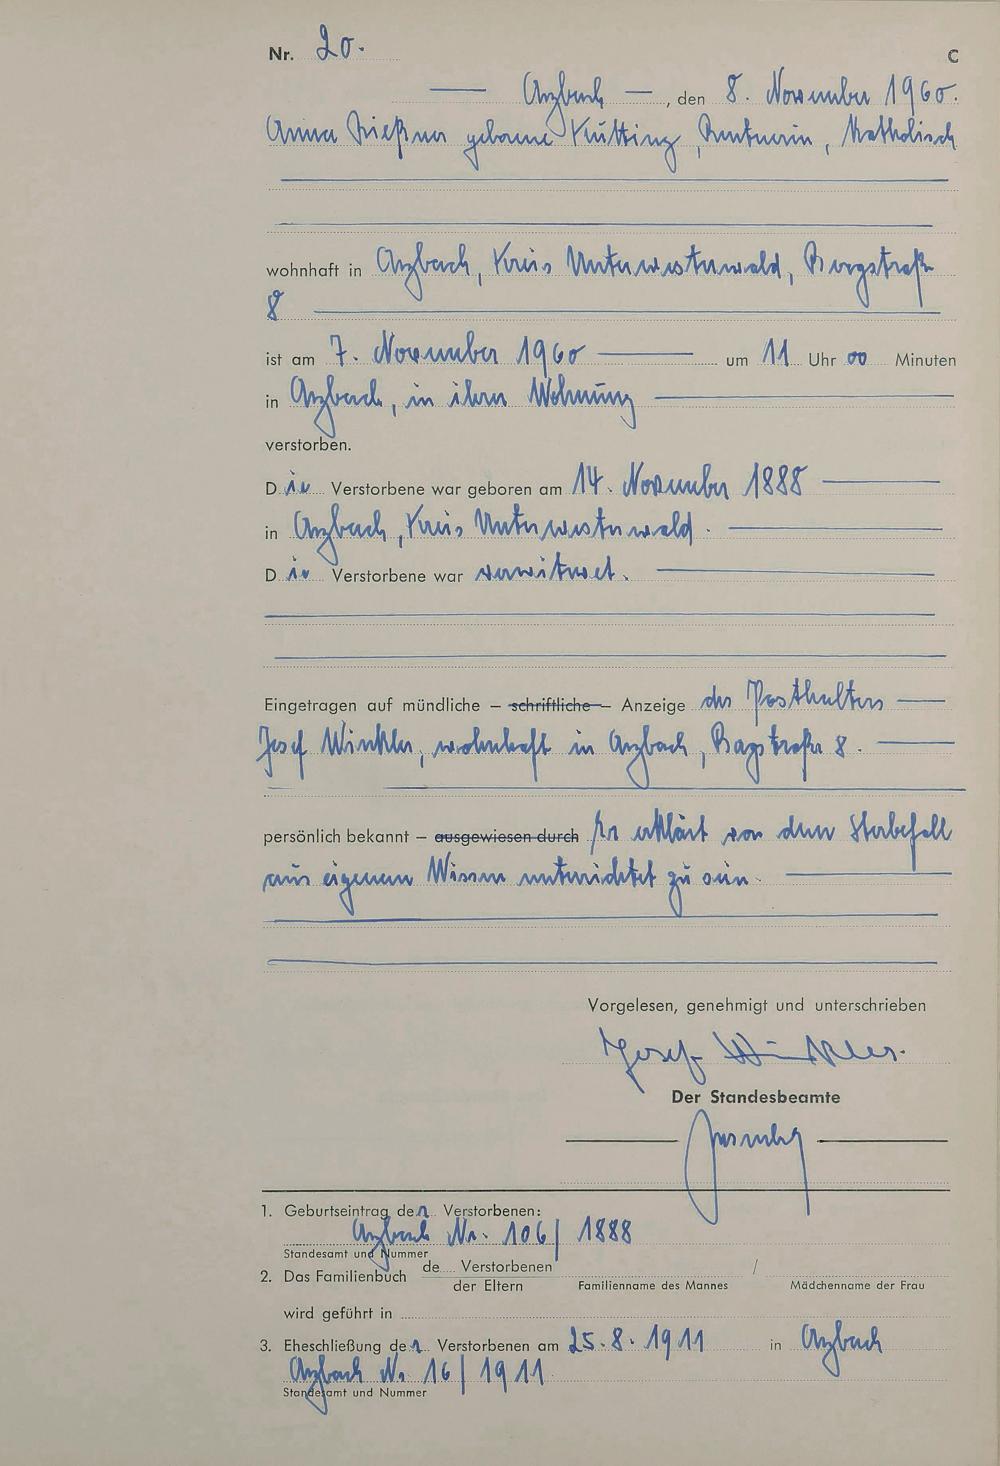 Nr. 20.
C
Arzbach, den 8. November 1960.
Anna geborene Kütting, Rentnerin, katholisch
wohnhaft in Arzbach, Kreis Unterwesterwald, Burgstraße
8
ist am 7. November 1960 um 11 Uhr 00 Minuten
in Arzbach, in ihrer Wohnung
verstorben.
Die Verstorbene war geboren am 14. November 1888
in Arzbach, Kreis Unterwesterwald.
Die Verstorbene war verwitwet.
Eingetragen auf mündliche – schriftliche – Anzeige des Posthalters
Josef Winkler, wohnhaft in Arzbach, Burgstraße 8.
persönlich bekannt – ausgewiesen durch Er erklärt von dem Sterbefall
aus eigenem Wissen unterrichtet zu sein.
Vorgelesen, genehmigt und unterschrieben
Josef Winkler.
Der Standesbeamte
1. Geburtseintrag der Verstorbenen:
Arzbach Nr. 106/1888
Standesamt und Nummer
2. Das Familienbuch de Verstorbenen /
der Eltern Familienname des Mannes Mädchenname der Frau
wird geführt in
3. Eheschließung der Verstorbenen am 25.8.1911 in Arzbach
Arzbach Nr. 16/1911
Standesamt und Nummer